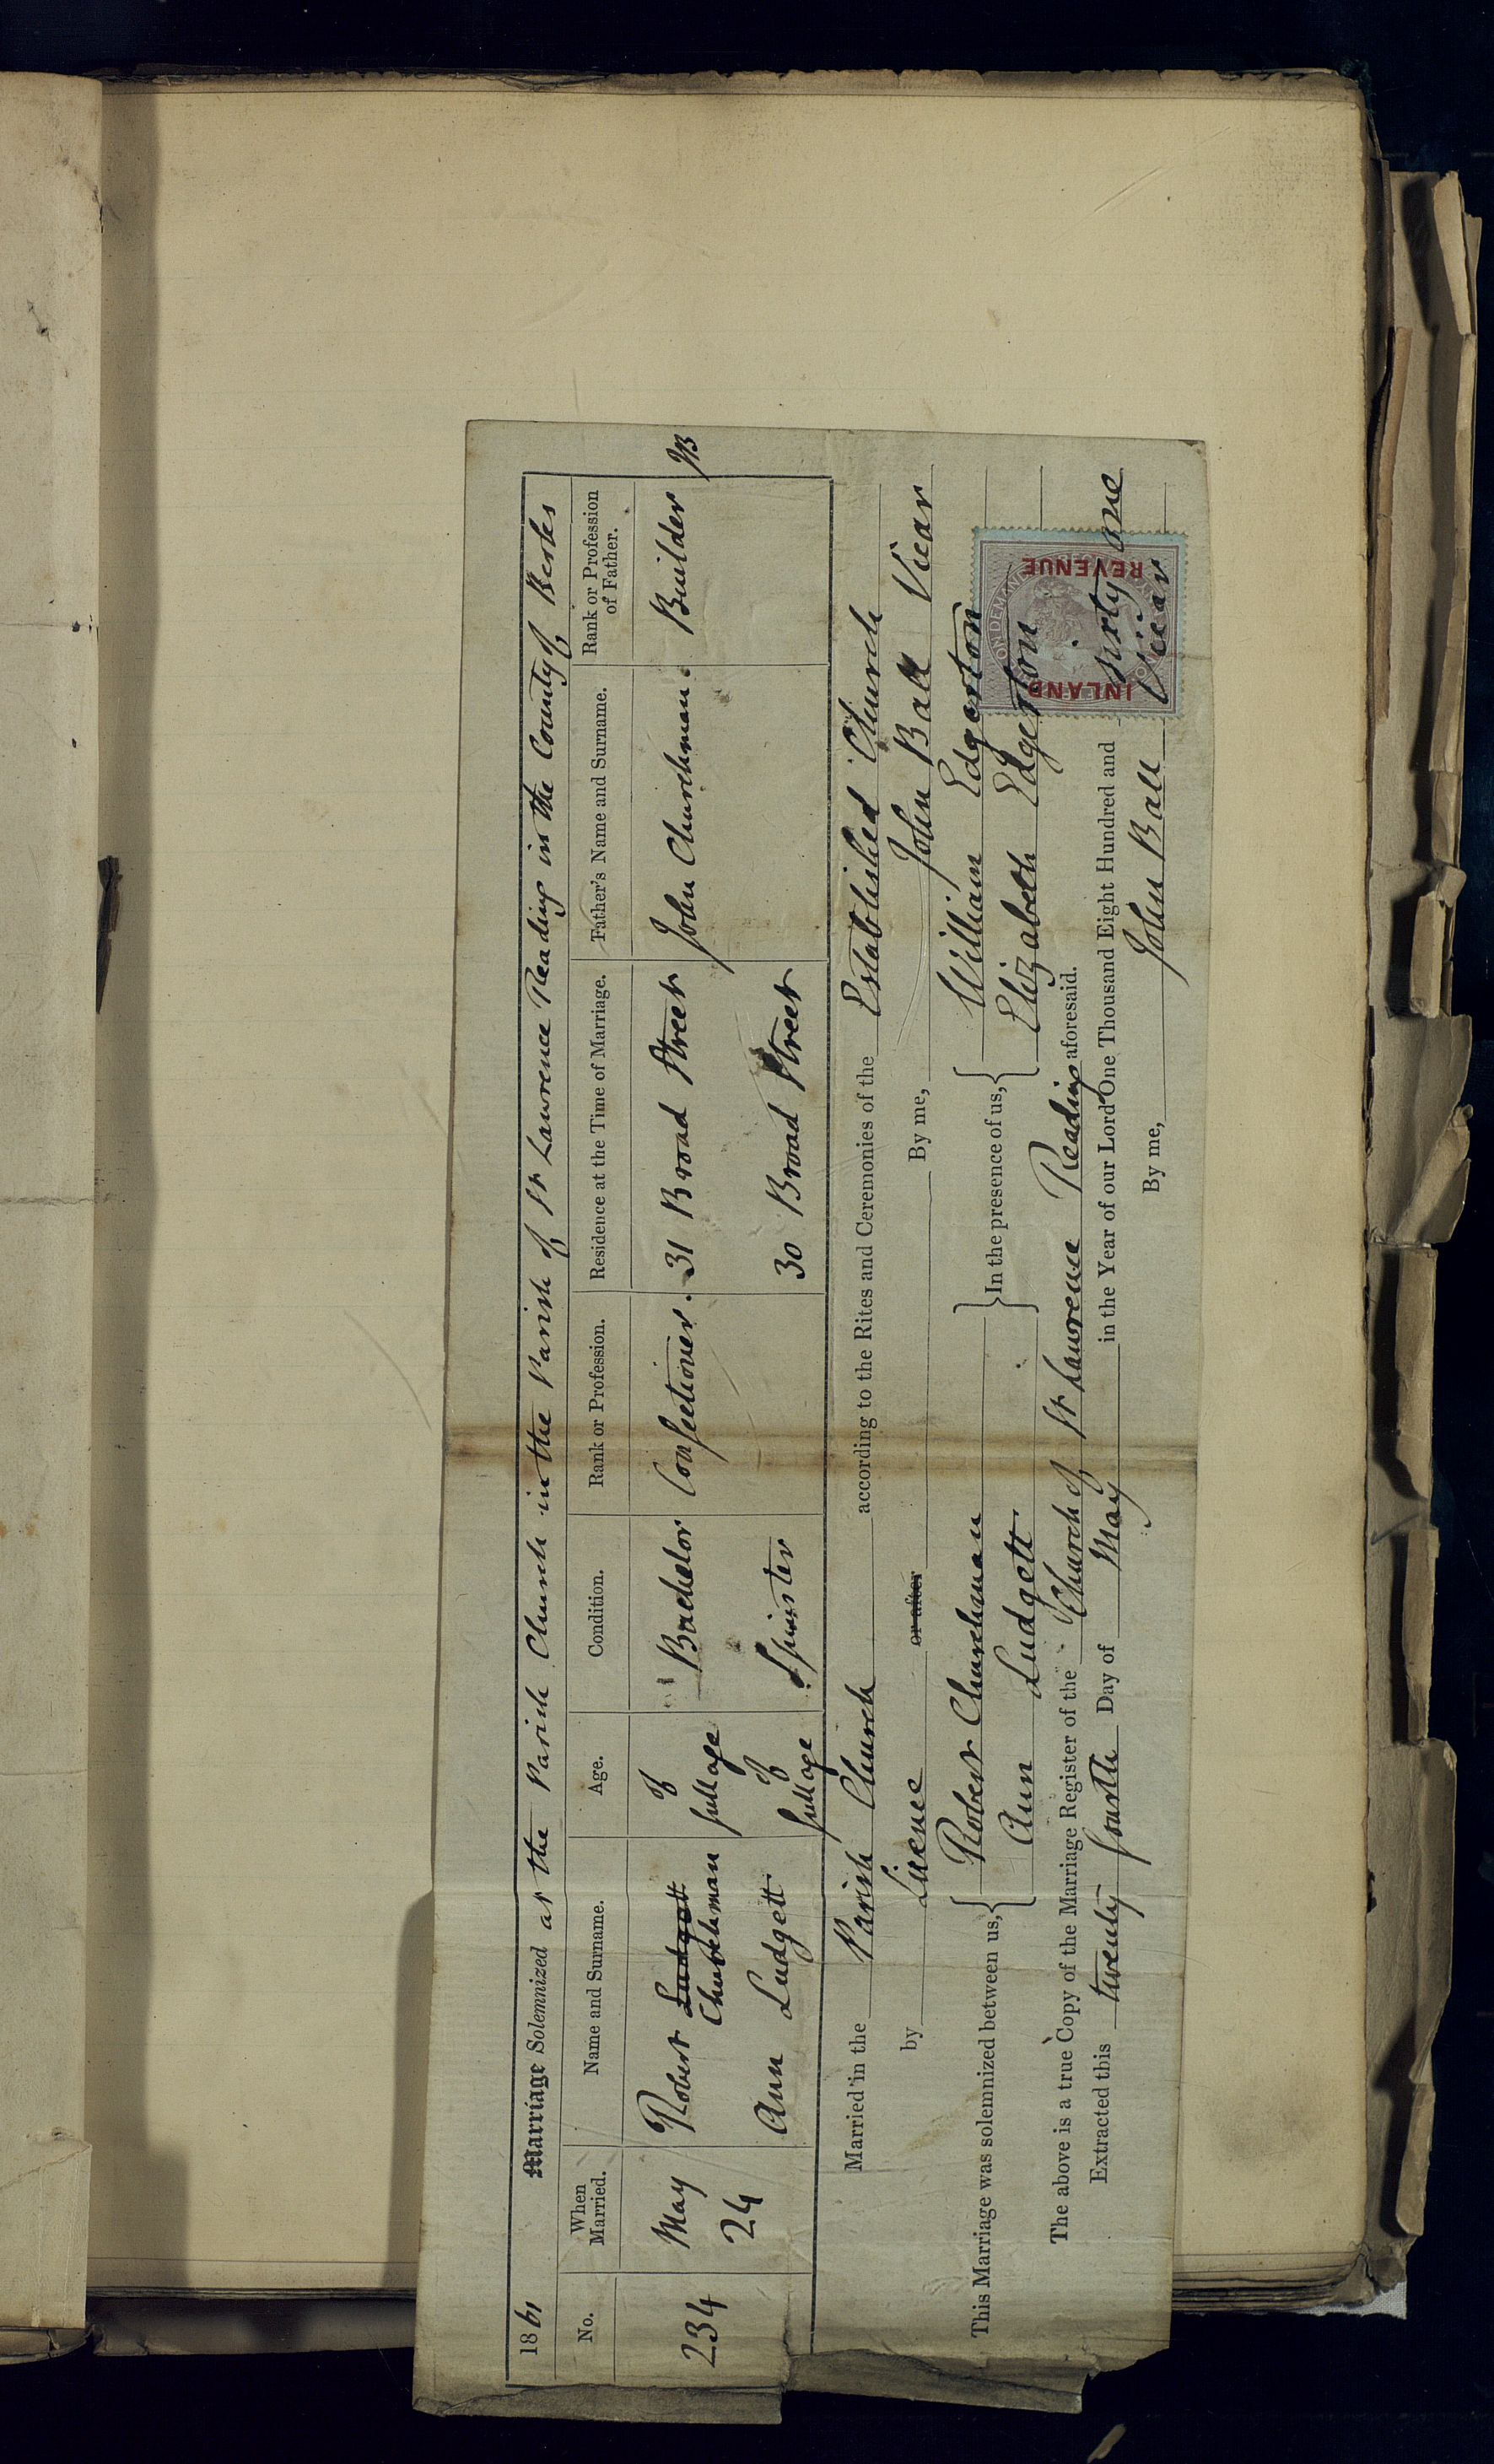 1861 Marriage Solemnized at the Parish Church in the Parish of St Lawrence Reading in the County of Berks
No. When Married. Name and Surname. Age. Condition. Rank or Profession. Residence at the Time of Marriage. Father's Name and Surname. Rank or Profession of Father.
234 May 24 Robert Ludgett Churchman of full age Bachelor Confectioner. 31 Broad Street John Churchman. Builder JB
Ann Ludgett of full age Spinster 30 Broad Street
Married in the Parish Church according to the Rites and Ceremonies of the Established Church
by Licence or after By me, John Ball Vicar
This Marriage was solemnized between us, { Robert Churchman } In the presence of us, { William Edgerton
Ann Ludgett. Elizabeth Edgerton
The above is a true Copy of the Marriage Register of the Church of St Lawrence Reading aforesaid.
Extracted this twenty fourth Day of May in the Year of our Lord One Thousand Eight Hundred and sixty one
By me, John Ball Vicar
INLAND REVENUE